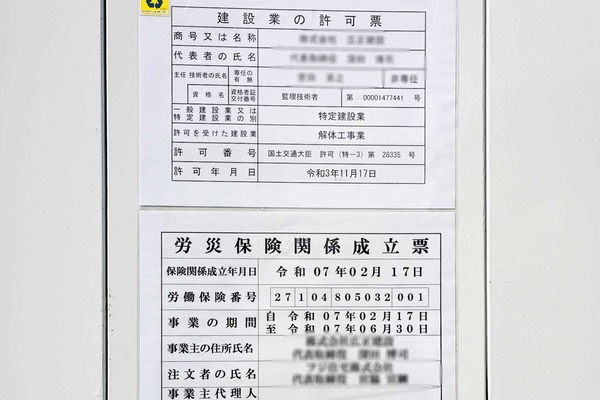 建設業の許可票
商号又は名称
代表者の氏名
主任技術者の氏名 専任の有無 非専任
資格名 資格者証交付番号 監理技術者 第 00001477441 号
一般建設業又は特定建設業の別 特定建設業
許可を受けた建設業 解体工事業
許可番号 国土交通大臣 許可（特−3）第 28335 号
許可年月日 令和3年11月17日
労災保険関係成立票
保険関係成立年月日 令和 07年02月 17日
労働保険番号 27 1 04 805032 001
事業の期間 自 令和 07年02月17日
至 令和 07年06月30日
事業主の住所氏名
注文者の氏名
事業主代理人